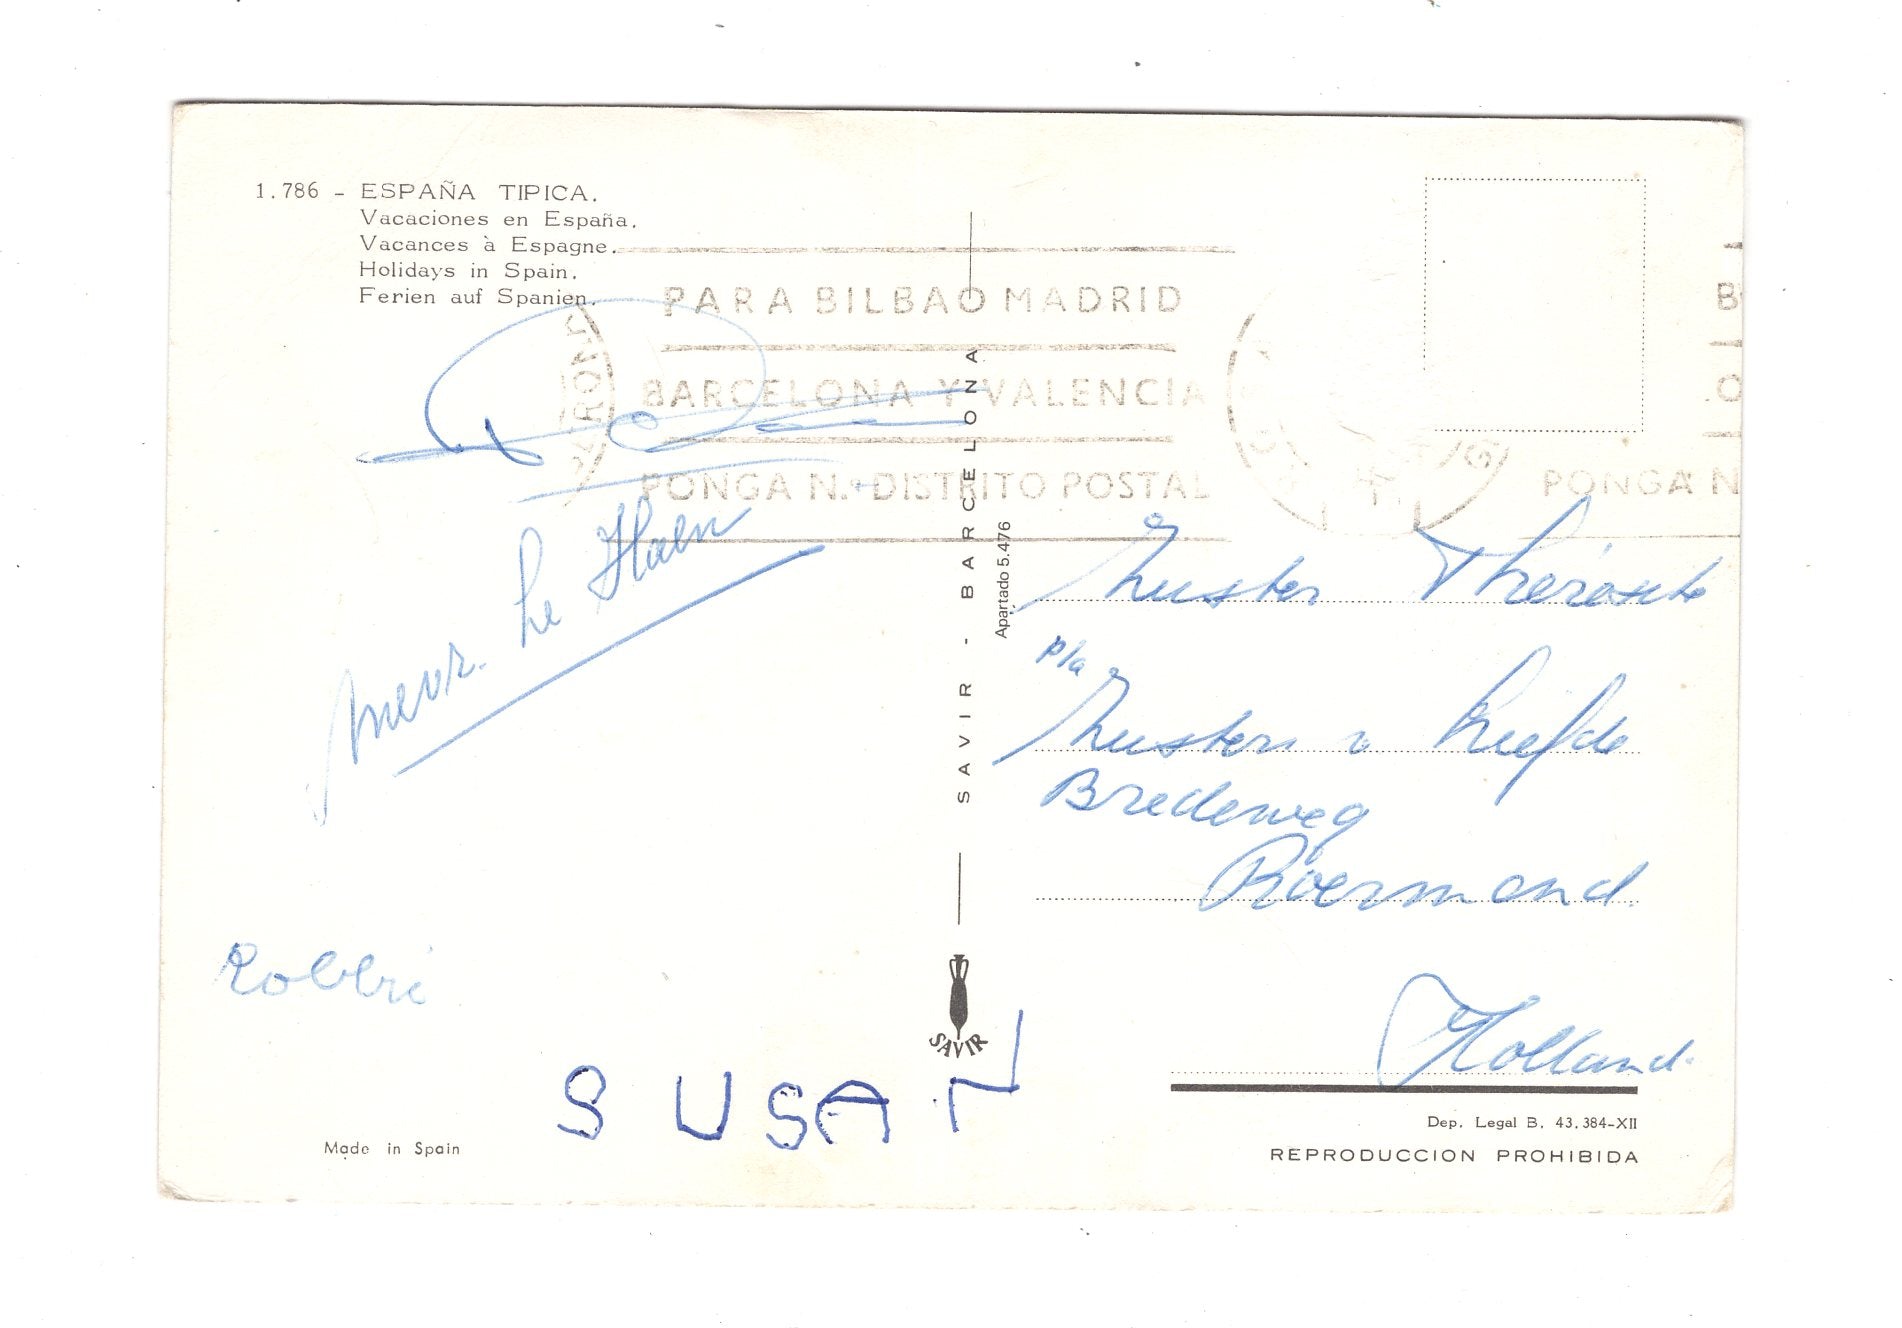 1.786 - ESPAÑA TIPICA.
Vacaciones en España.
Vacances à Espagne.
Holidays in Spain.
Ferien auf Spanien.
PARA BILBAO MADRID
BARCELONA Y VALENCIA
PONGA N. DISTRITO POSTAL
PONGA N
Mevr. Le Haen
Robbri
SUSAN
Made in Spain
SAVIR - BARCELONA
Apartado 5.476
SAVIR
Zuster
p/a
Zusters v Liefde
Bredeweg
Roermond.
Holland.
Dep. Legal B. 43.384-XII
REPRODUCCION PROHIBIDA